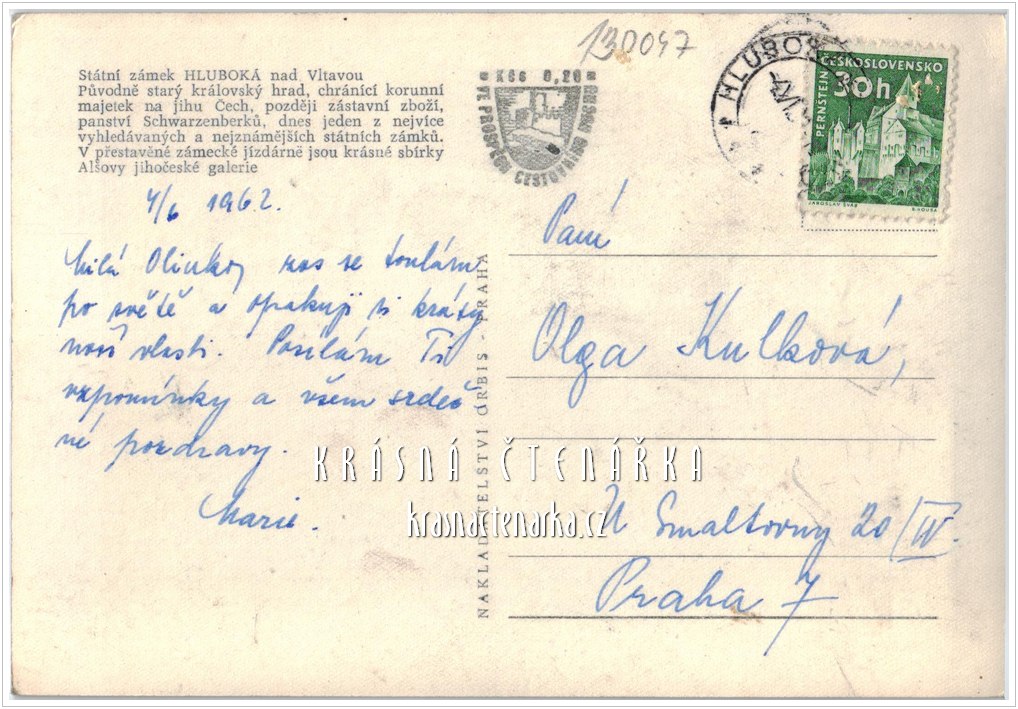 130047
Státní zámek HLUBOKÁ nad Vltavou
Původně starý královský hrad, chránící korunní
majetek na jihu Čech, později zástavní zboží,
panství Schwarzenberků, dnes jeden z nejvíce
vyhledávaných a nejznámějších státních zámků.
V přestavěné zámecké jízdárně jsou krásné sbírky
Alšovy jihočeské galerie
Kčs 0,20
VE PROSPĚCH CESTOVNÍHO RUCHU
HLUBOK
ČESKOSLOVENSKO
30h
PERNŠTEJN
JAROSLAV ŠVÁB
4/6 1962.
Milá Olinko, zas se toulám
po světě a opakuji si krásy
naší vlasti. Posílám Ti
vzpomínky a všem srdeč-
né pozdravy.
Marie.
NAKLADATELSTVÍ ORBIS - PRAHA
Paní
Olga Kulková,
U Smaltovny 20/IV.
Praha 7
KRÁSNÁ ČTENÁŘKA
kramactenarka.cz